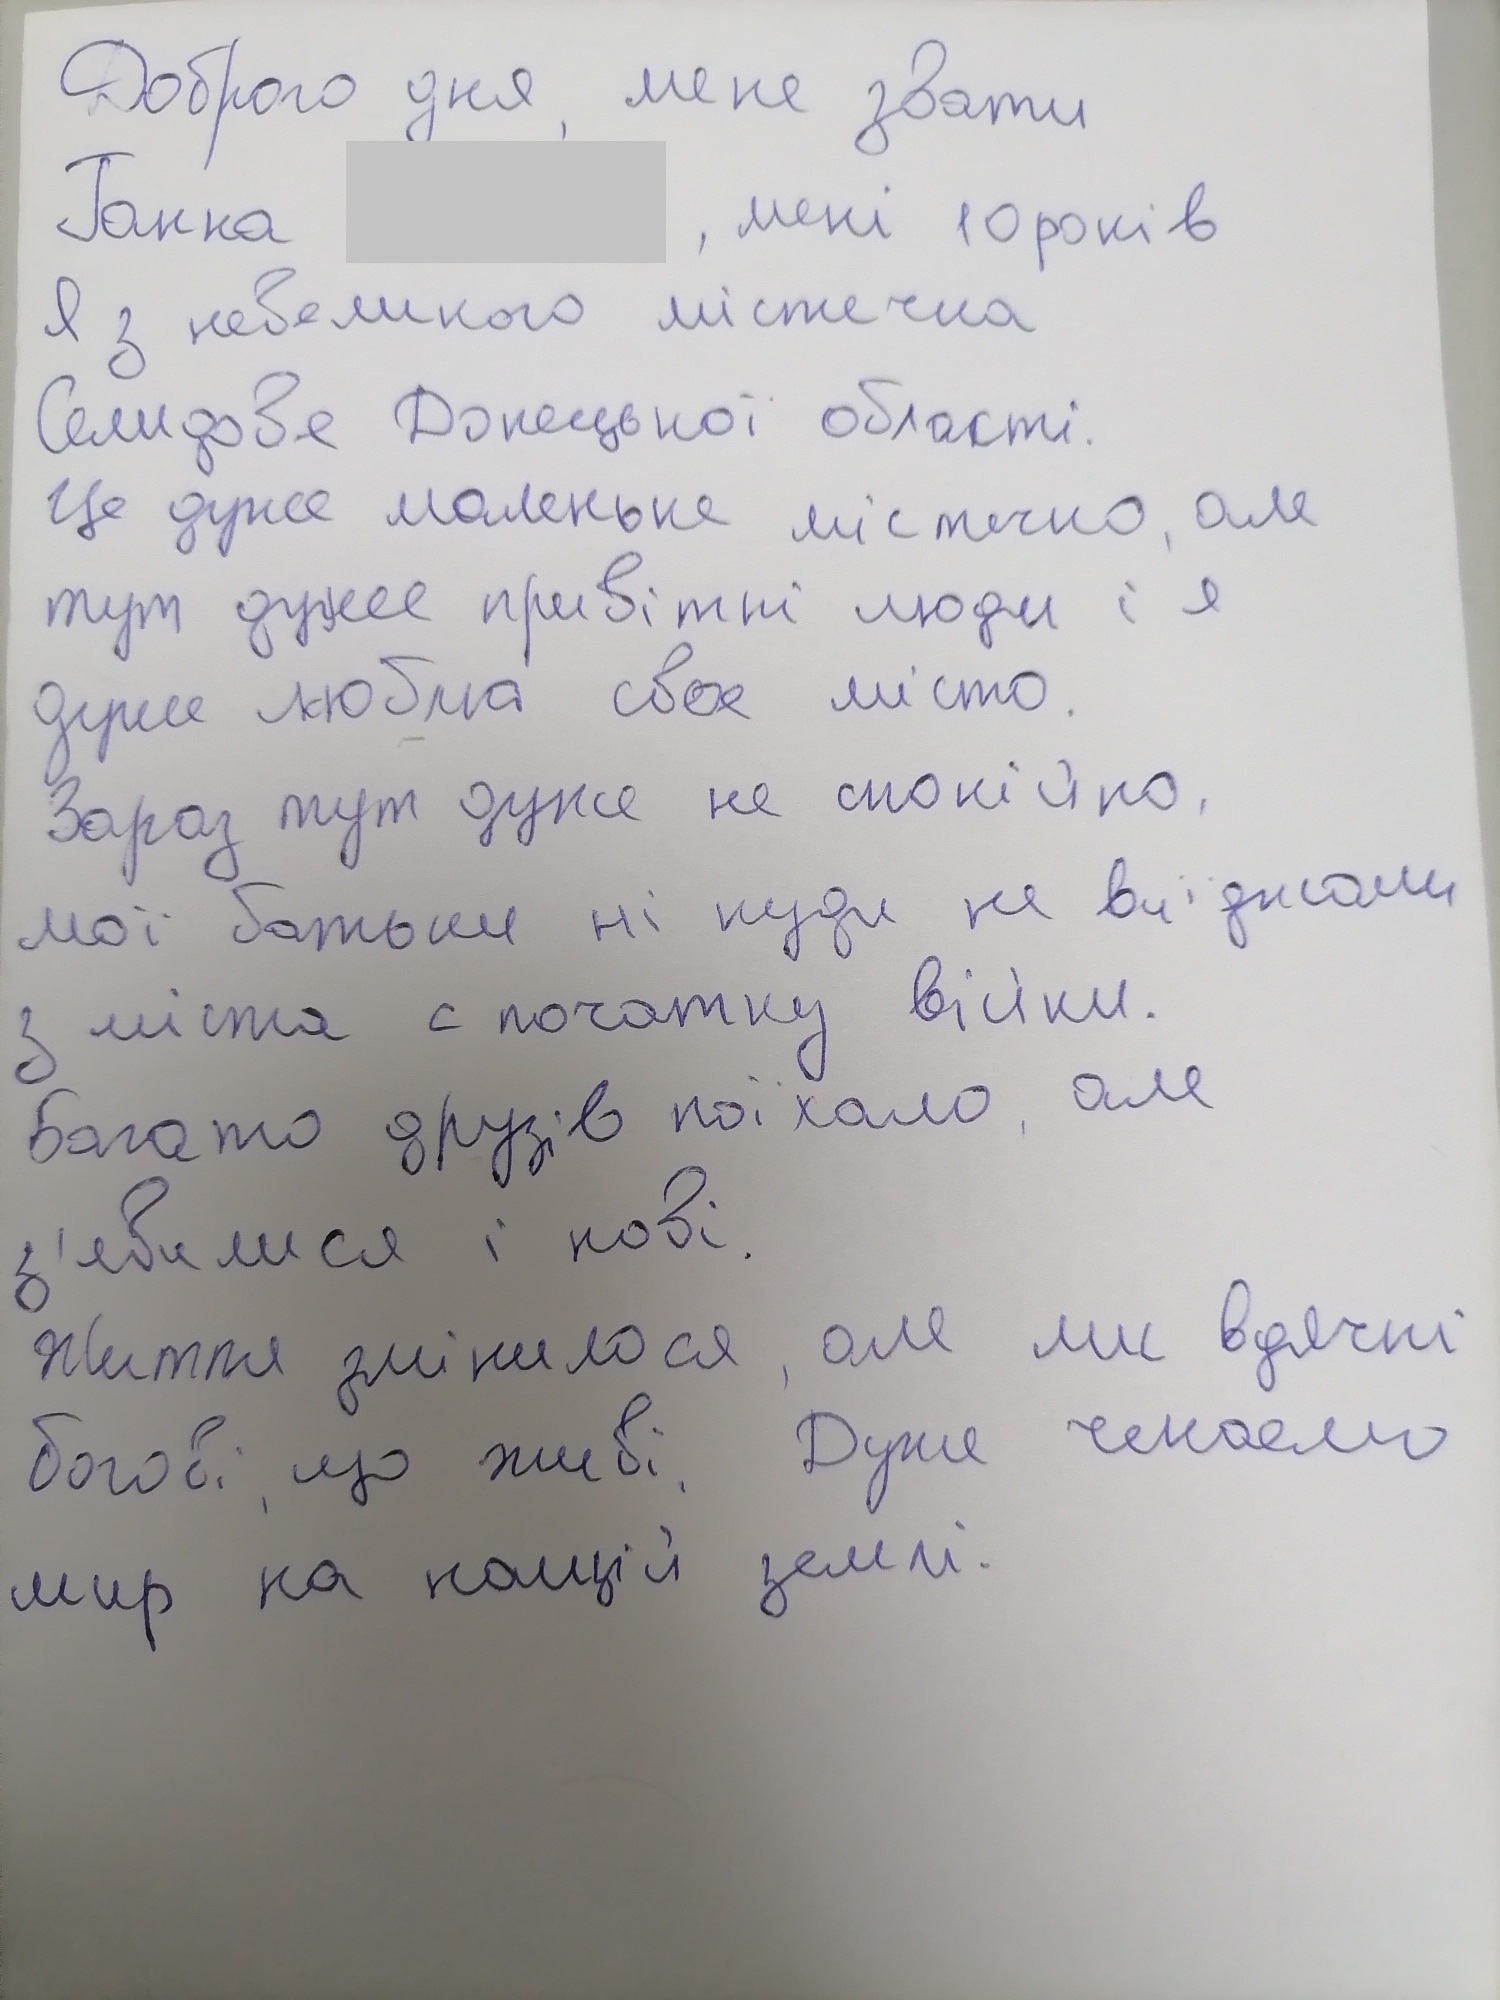 Доброго дня, мене звати
Ганна , мені 10 років
Я з невеликого містечка
Селидове Донецької області.
Це дуже маленьке містечко, але
тут дуже привітні люди і я
дуже люблю своє місто.
Зараз тут дуже не спокійно,
мої батьки ні куди не виїджали
з міста с початку війни.
Багато друзів поїхало, але
з'явилися і нові.
Життя змінилося, але ми вдячні
богові, що живі. Дуже чекаємо
мир на нашій землі.